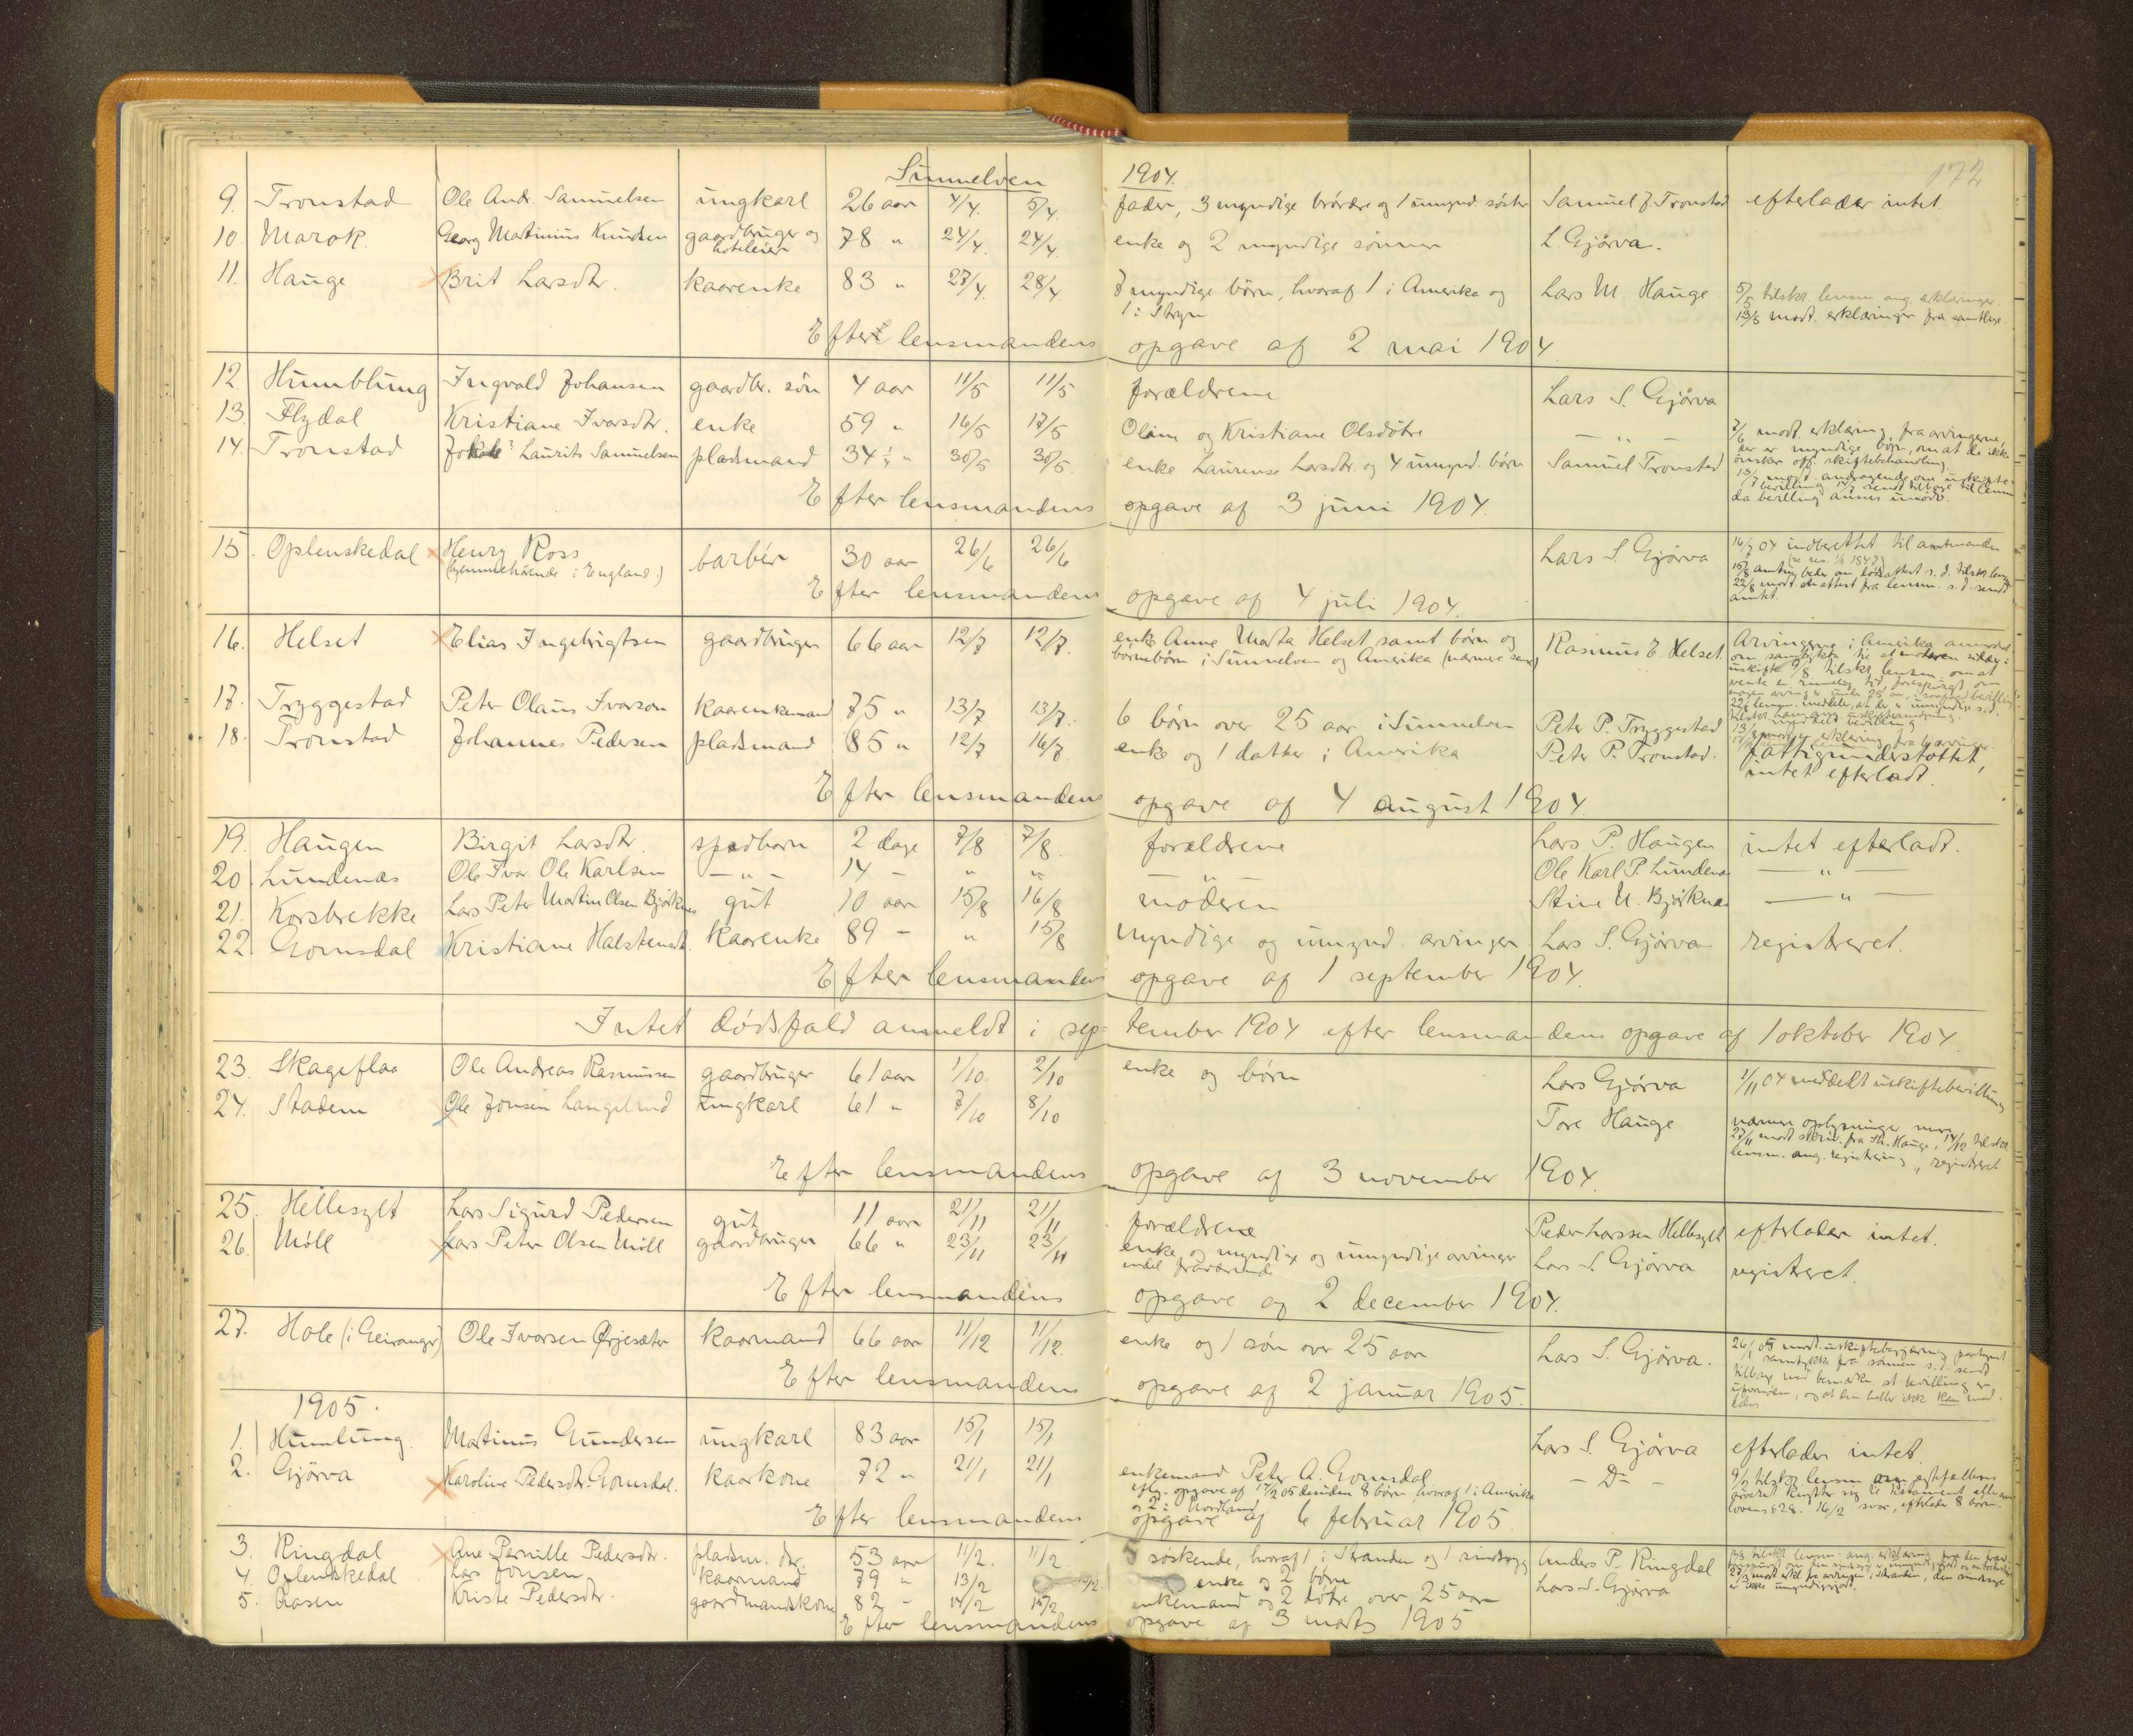 Sunnelven 1904. 172
9. Tronstad Ole Andr. Samuelsen ungkarl 26 aar 4/4. 5/4. fader, 3 myndige brødre og 1 umynd. søster Samuel J Tronstad efterlader intet.
10. Marok. Georg Martinius Knudsen gaardbruger og hoteleier 78 " 24/4. 24/4. enke og 2 myndige sønner L. Gjørva.
11. Hauge Brit Larsdtr. kaarenke 83 " 27/4. 28/4. 8 myndige børn, hvoraf 1 i Amerika og Lars M. Hauge 5/5 tilskr. lensm. ang. erklæringer.
1 i Stryn 13/5 modt. erklæringer fra samtlige.
Efter lensmandens opgave af 2 mai 1904
12. Humblung Ingvald Johansen gaardbr. søn 4 aar 11/5 11/5 forældrene Lars S. Gjørva
13. Flydal Kristiane Ivarsdtr. enke 59 " 16/5 17/5 Oline og Kristiane Olsdøtre — " — 7/6 modt. erklæring fra arvingerne,
der er myndige børn, om at de ikke
ønsker off. skiftebehandling.
14. Tronstad Laurits Samuelsen pladsmand 34 30/5 30/5. enke Laurense Larsdtr. og 4 umynd. børn Samuel Tronstad 13/7 modt. andragende om uskifte-
bevilling 14/7 sendt tilbage til lensm
da bevilling ansees unødv.
Efter lensmandens opgave af 3 juni 1904.
15. Oplenskedal Henry Ross barbér 30 aar 26/6 26/6 Lars S. Gjørva 16/7 04 indberettet til amtmanden
(hjemmehørende i England.)
22/8 modt. attest fra lensm. s.d. sendt
amtet.
Efter lensmandens opgave af 4 juli 1904.
16. Helset Elias Ingebrigtsen gaardbruger 66 aar 12/7 12/7. enke Anne Marta Helset samt børn og Rasmus E Helset. Arvingerne i Amerika
børnebørn i Sunnelven og Amerika
17. Tryggestad Peter Olaus Ivarson kaarenkemand 75 " 13/7 13/7. 6 børn over 25 aar i Sunnelven Peter P. Tryggestad
18. Tronstad Johannes Pedersen pladsmand 85 " 12/7 16/7 enke og 1 datter i Amerika Peter P. Tronstad. fattigunderstøttet,
intet efterladt.
Efter lensmandens opgave af 4 august 1904
19. Haugen Birgit Larsdtr. spædbarn 2 dage 7/8 7/8. forældrene Lars P. Haugen intet efterladt.
20. Lundenæs Ole Ivar Ole Karlsen — " — 14 - " " " Ole Karl P. Lundenæs — " —
21. Korsbrekke Lars Peter Martin Olsen Bjørknes gut 10 aar 15/8 16/8 moderen Stine U. Bjørknæs — " —
22. Gomsdal Kristiane Halstensdt. kaarenke 89 - " 15/8 myndige og umynd. arvinger. Lars S. Gjørva registreret.
Efter lensmandens opgave af 1 september 1904.
Intet dødsfald anmeldt i september 1904 efter lensmandens opgave af 1 oktober 1904.
23. Skageflaa Ole Andreas Rasmussen gaardbruger 61 aar 1/10 2/10 enke og børn Lars Gjørva 1/11 04 meddelt uskiftebevilling
24. Stadem Ole Jonsen Langeland ungkarl 61 " 7/10 8/10 Tore Hauge nærmere oplysninger
27/11 modt skriv. fra Th. Hauge, 14/12 tilskr.
lensm. ang. registrering, registreret
Efter lensmandens opgave af 3 november 1904.
25. Hellesylt Lars Sigurd Pedersen gut 11 aar 21/11 21/11 forældrene Peder Larssen Hellesylt efterlader intet.
26. Møll Lars Peter Olsen Møll gaardbruger 66 " 23/11 23/11 enke og myndige og umyndige arvinger Lars S. Gjørva registreret.
endel fraværende
Efter lensmandens opgave af 2 december 1904.
27. Hole (i Geiranger) Ole Ivarsen Ørjesæter kaarmand 66 aar 11/12 11/12. enke og 1 søn over 25 aar Lars S. Gjørva. 26/1 05 modt. uskiftebegjæring paategnet
samtykke fra sønnen s.d. sendt
tilbage med bemærkn. at bevilling er
ufornøden, og at den heller ikke kan med-
deles
Efter lensmandens opgave af 2 januar 1905.
1905.
1. Humlung. Martinus Gundersen ungkarl 83 aar 15/1 15/1 Lars S. Gjørva efterlader intet.
2. Gjørva Karoline Pedersdtr. Gomsdal. kaarkone 72 " 21/1 21/1 enkemand Peter A. Gomsdal — Do — 9/2 tilskr lensm om
eftr. opgave af 17/2 05 desuden 8 børn, hvoraf 1 i Amerika
og 2 i Nordland lovens § 28. 16/2 svar, efterlader 8 børn.
Efter lensmandens opgave af 6 februar 1905.
3. Ringdal Ane Pernille Pedersdtr. pladsm. dtr. 53 aar 11/2. 11/2. 5 søskende, hvoraf 1 i Stranden og 1 sindssyg Anders P. Ringdal
4. Oplenskedal Lars Jonsen kaarmand 79 " 13/2 enke og 2 børn Lars S. Gjørva
5. Aasen Kriste Pedersdtr. gaardmandskone 82 - 14/2 15/2 enkemand og 2 døtre over 25 aar
Efter lensmandens opgave af 3 marts 1905